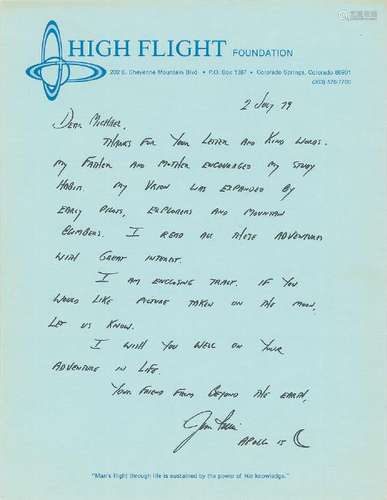 HIGH FLIGHT FOUNDATION
202 E. Cheyenne Mountain Blvd. • P.O. Box 1387 • Colorado Springs, Colorado 80901
(303) 576-7700
2 July 79
Dear Michael,
Thanks for your letter and kind words.
My Father and Mother encouraged my study
habit. My vision was expanded by
early pilots, explorers and mountain
climbers. I read all these adventures
with great interest.
I am enclosing tract. If you
would like picture taken on the moon,
let us know.
I wish you well on your
adventure in life.
Your friend from beyond the earth,
Jim Irwin
Apollo 15
"Man's flight through life is sustained by the power of his knowledge."